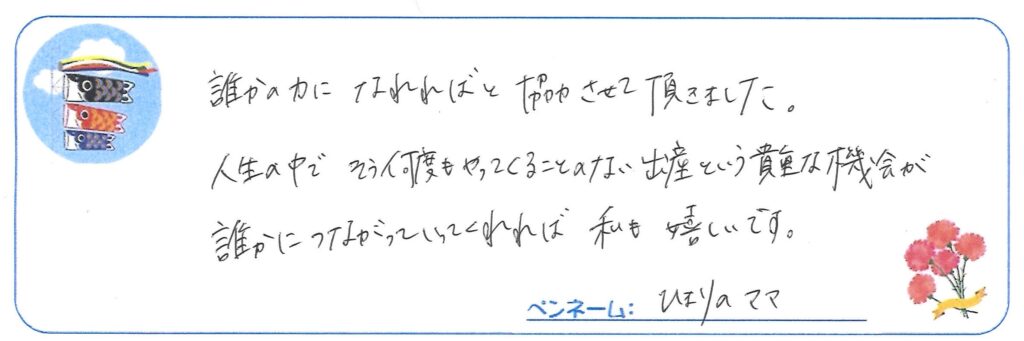 誰かの力に なれればと 協力させて頂きました。
人生の中で そう何度もやってくることのない出産という貴重な機会が
誰かにつながっていってくれれば 私も嬉しいです。
ペンネーム: ひまりのママ